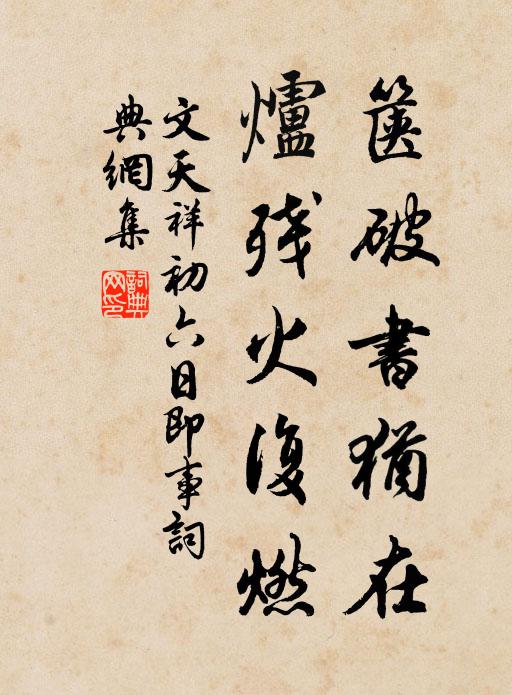 篋破書猶在
爐殘火復燃
文天祥初六日即事詞
典網集
詞典网印